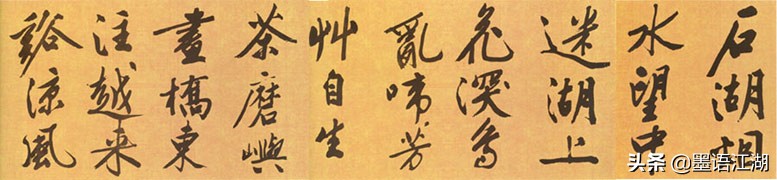 石湖烟
水望中
迷湖上
花深鳥
亂啼芳
艸自生
茶磨嶼
畫橋東
注越来
谿涼風
头条 @墨语江湖